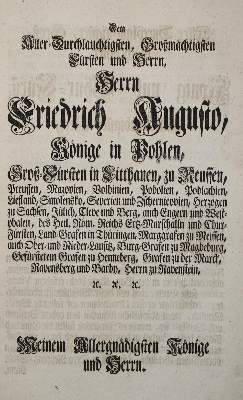 Dem
Aller-Durchlauchtigsten, Großmächtigsten
Fürsten und Herrn,
Herrn
Friedrich Augusto,
Könige in Pohlen,
Groß-Fürsten in Litthauen, zu Reussen,
Preussen, Mazovien, Volhinien, Podolien, Podlachien,
Liefland, Smolensko, Severien und Zschernicovien, Herzogen
zu Sachsen, Jülich, Cleve und Berg, auch Engern und West-
phalen, des Heil. Röm. Reichs Ertz-Marschalln und Chur-
Fürsten, Land Grafen in Thüringen, Marggrafen zu Meissen,
auch Ober- und Nieder-Lausitz, Burg-Grafen zu Magdeburg,
Gefürsteten Grafen zu Henneberg, Grafen zu der Marck,
Ravensberg und Barby, Herrn zu Ravenstein,
ꝛc. ꝛc. ꝛc.
Meinem Allergnädigsten Könige
und Herrn.